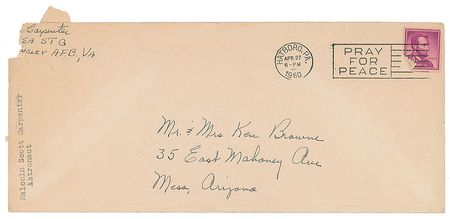 Carpenter
SA STG
NGLEY AFB, VA
HATBORO, PA.
APR 27
6-PM
1960
PRAY
FOR
PEACE
Mr. & Mrs Ken Browne
35 East Mahoney Ave
Mesa, Arizona
Malcolm Scott Carpenter
Astronaut